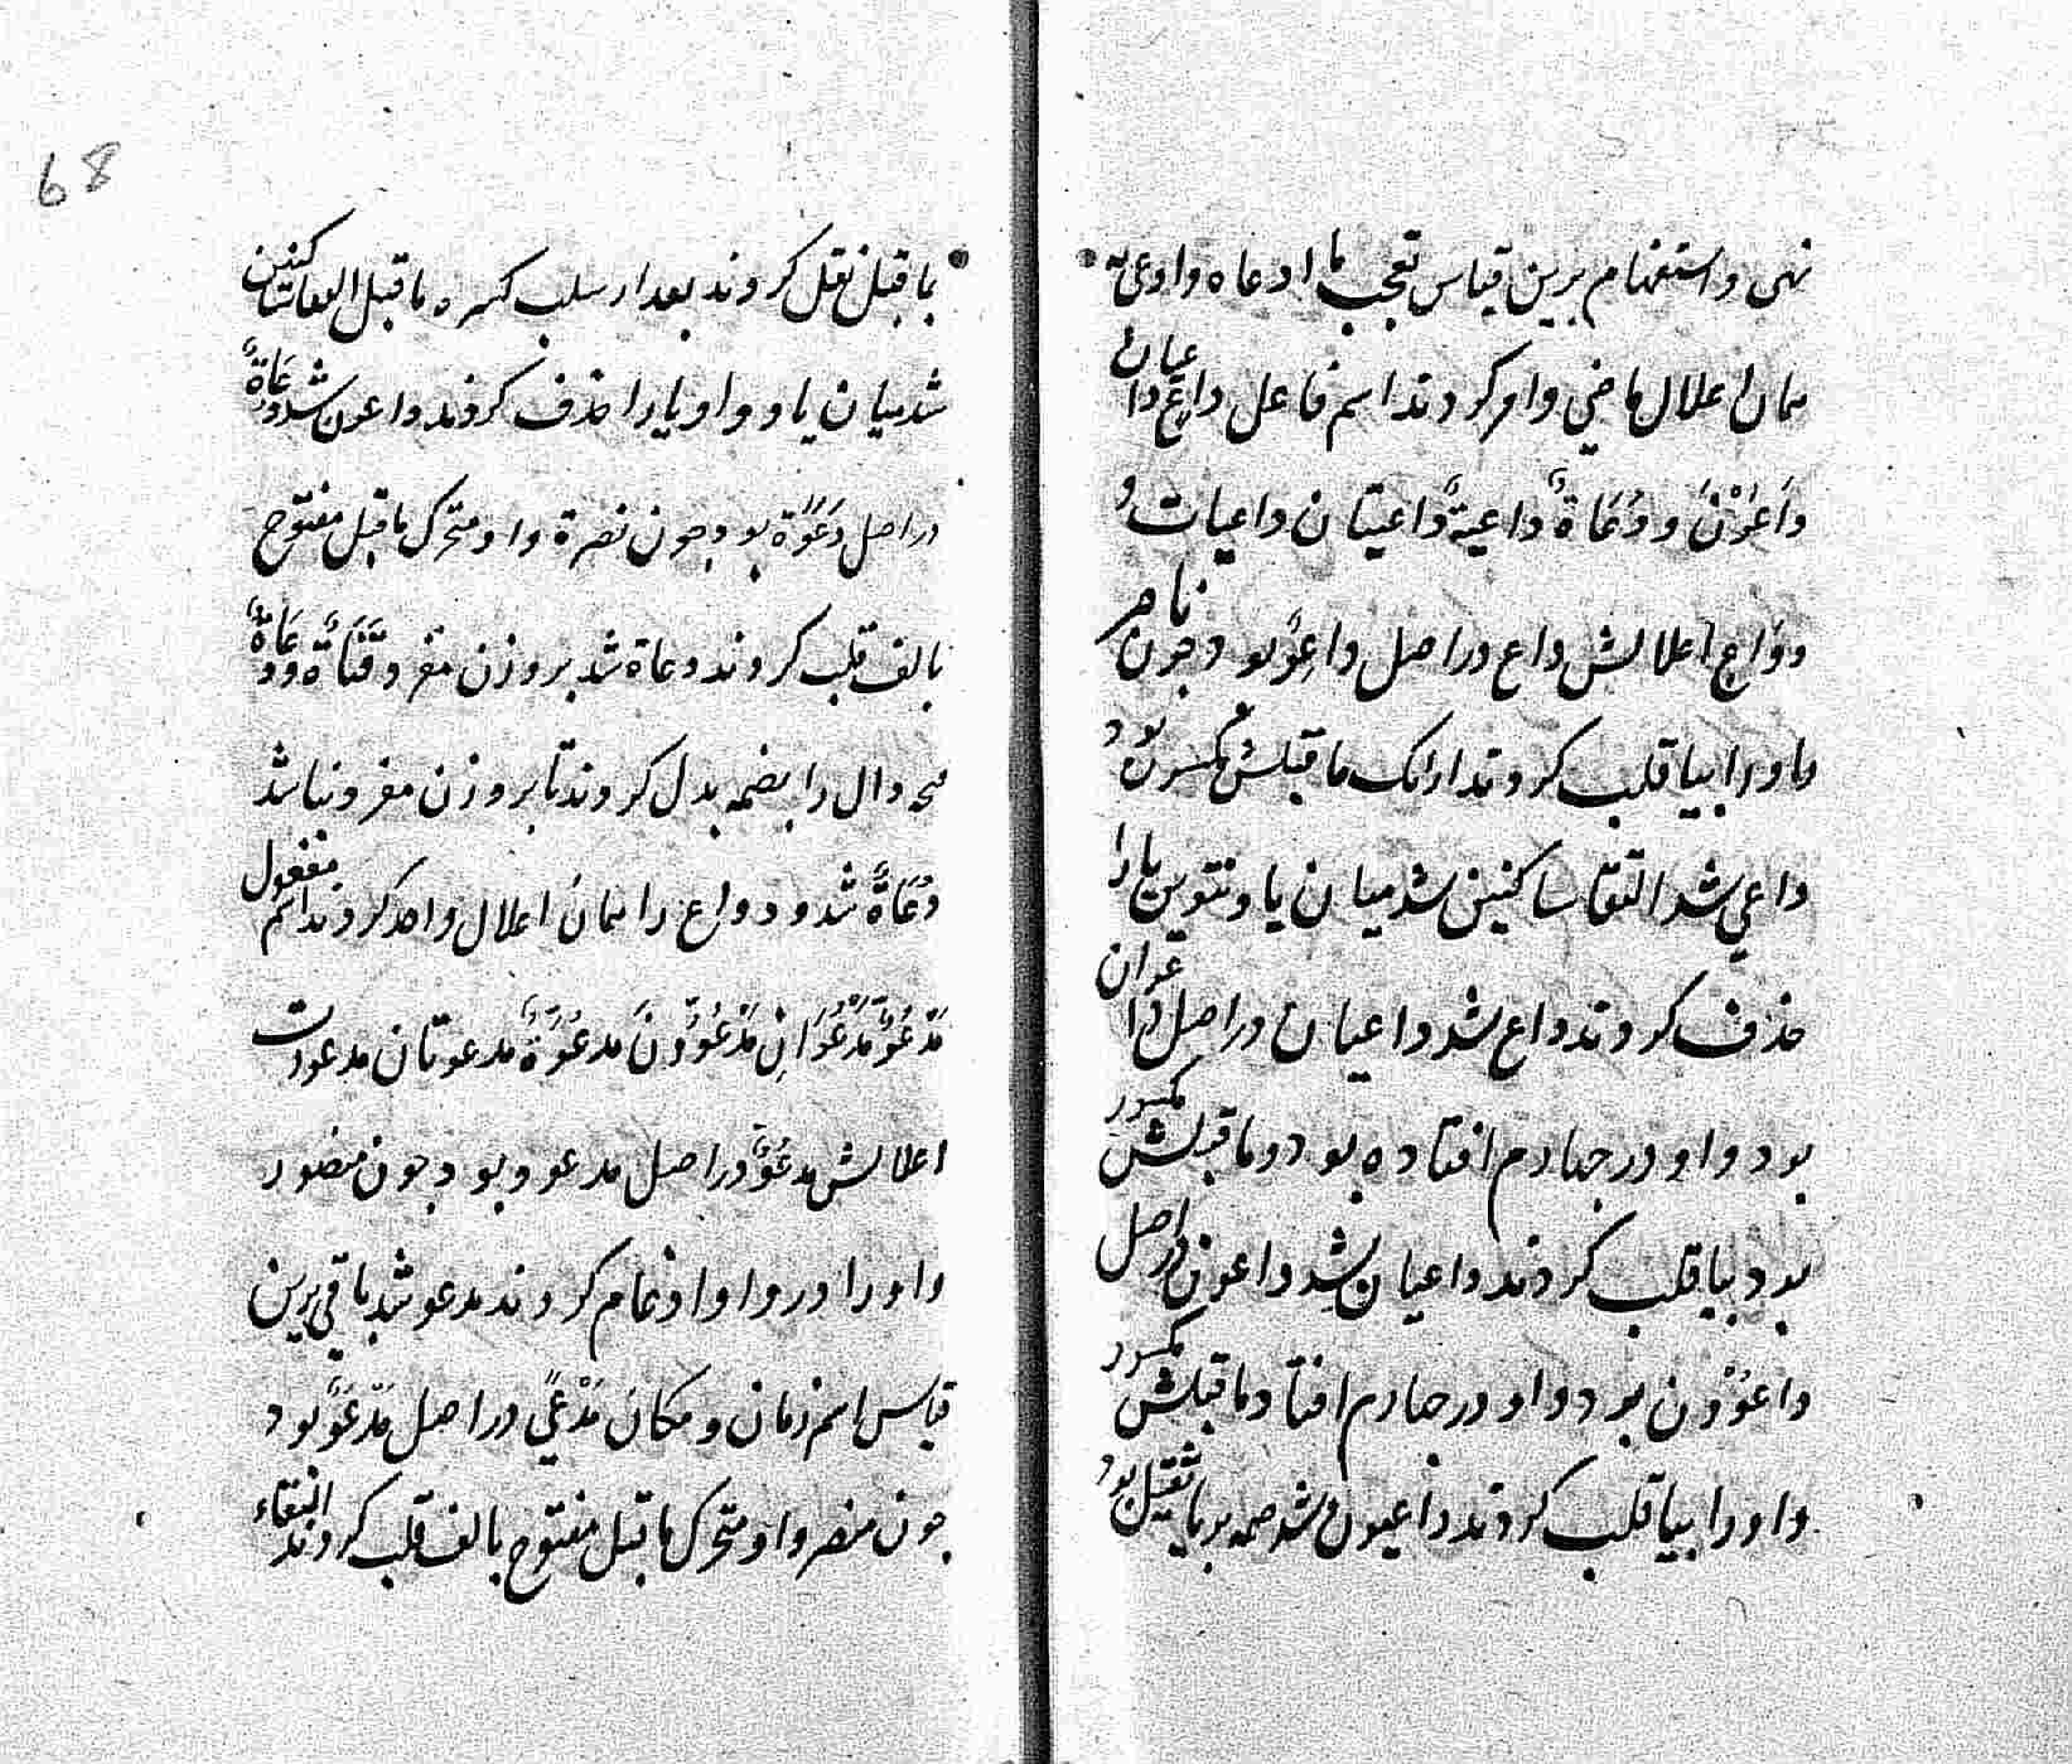 نهی و استفهام برین قیاس تعجب ما ادعاه و ادعی به
همان اعلال ماضی و امر کردند اسم فاعل داعٍ داعیان
دَاعُوْنَ و دُعَاةٌ داعیةٌ داعیتان داعیات و
دوَاعٍ اعلالش داع در اصل داعِوٌ بود چون ناصر
واو را بیا قلب کردند از انک ما قبلش مکسور بود
داعی شد التقا ساکنین شد میان یا و تنوین یا را
حذف کردند داع شد داعیان در اصل داعوان
بود واو در چهارم افتاده بود و ما قبلش مکسور
بود بیا قلب کردند داعیان شد داعون در اصل
داعوُوْن بود واو در چهارم افتاد ما قبلش مکسور
واو را بیا قلب کردند داعیون شد ضمه بر یا ثقیل بود
68
بما قبل نقل کردند بعد از سلب کسره ما قبل التقا ساکنین
شد میان یا و واو یا را حذف کردند داعون شد و دعَاةٌ
در اصل دَعَوَةٌ بود چون نصرة واو متحرک ما قبل مفتوح
بالف قلب کردند دعاة شد بر وزن مفرد قَنَاةٌ و دعَاةٌ
فتحه دال را بضمه بدل کردند تا بر وزن مفرد نباشد
دُعَاةٌ شد و دواع را همان اعلال واحد کردند اسم مفعول
مَدْعُوٌّ مَدْعُوَّانِ مَدْعُوُّونَ مدعُوَّةٌ مدعوتان مدعوات
اعلالش مدعُوٌّ در اصل مدعوو بود چون منصور
واو را در واو ادغام کردند مدعو شد باقی برین
قیاس اسم زمان و مکان مَدْعًی در اصل مَدْعَوٌ بود
چون منصر واو متحرک ما قبل مفتوح بالف قلب کردند التقاء